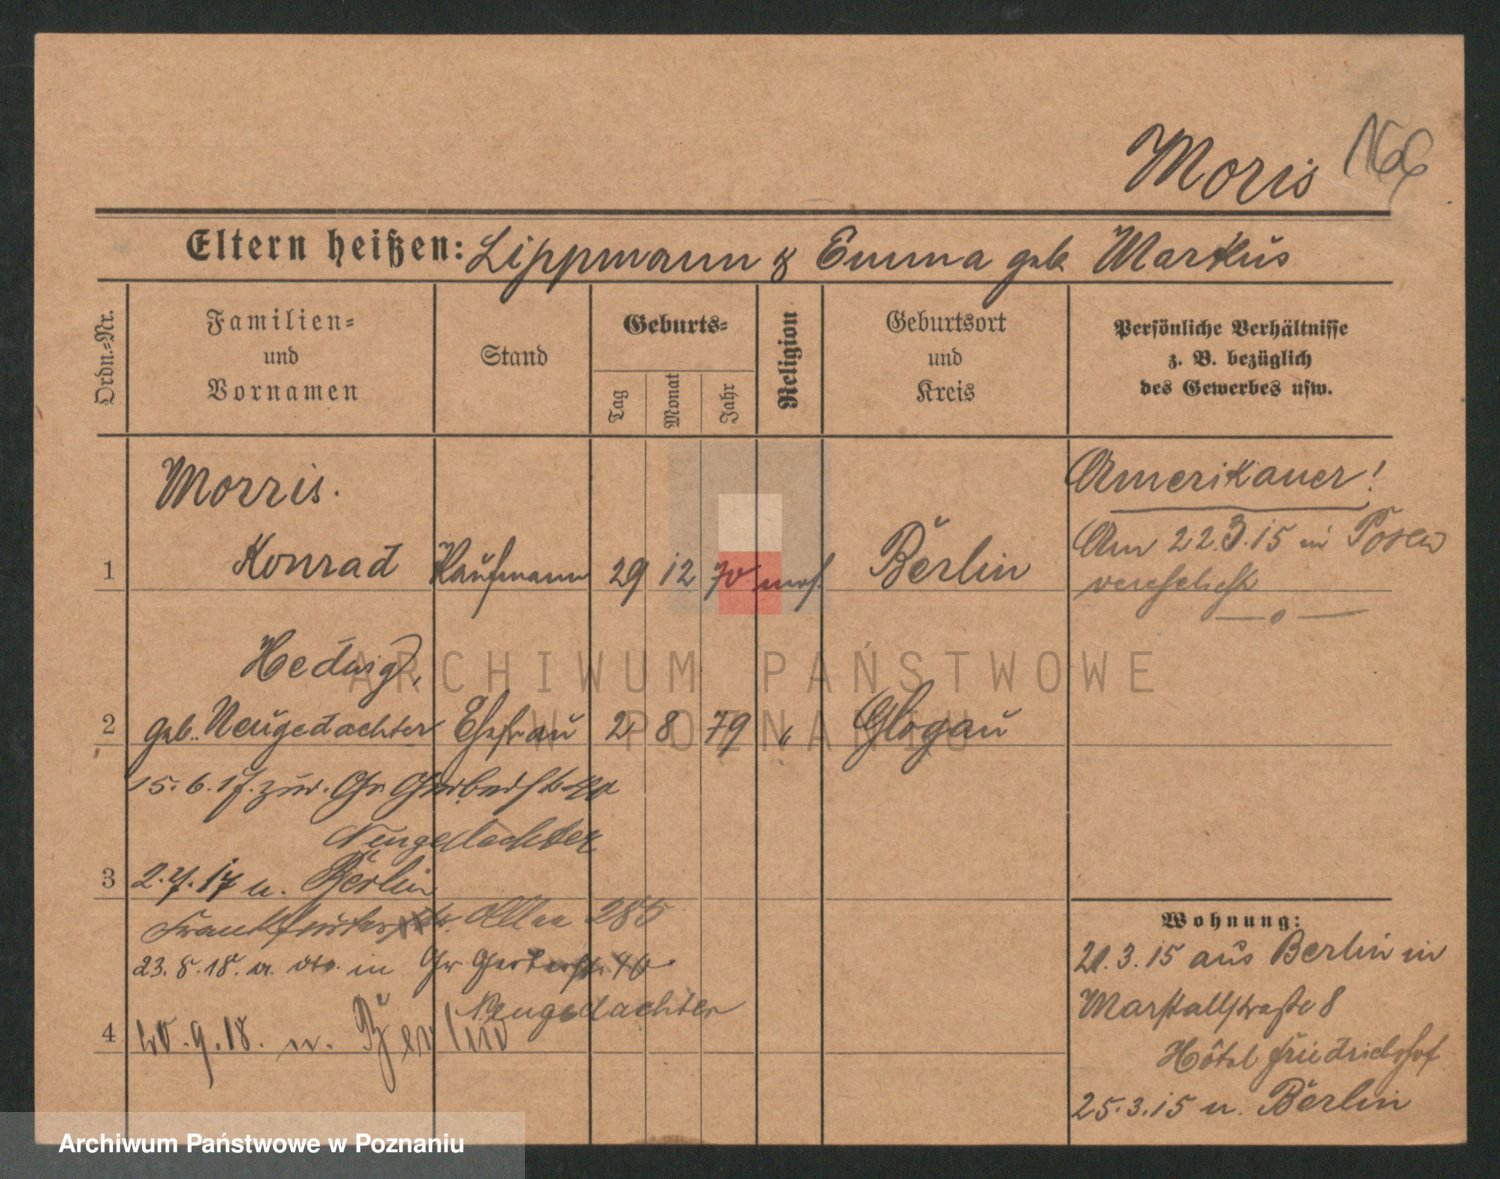 Moris 166
Eltern heißen: Lippmann & Emma geb. Markus
Ordn.-Nr.
Familien=
und
Vornamen
Stand
Geburts=
Tag
Monat
Jahr
Religion
Geburtsort
und
Kreis
Persönliche Verhältnisse
z. B. bezüglich
des Gewerbes usw.
Morris.
1 Konrad Kaufmann 29 12 70 mos. Berlin
Amerikaner!
Am 22.3.15 in Posen
verehelicht
— o —
Hedwig,
2 geb. Neugedachter Ehefrau 2 8 79 " Glogau
15.6.17. zur. Gr Gerberstr 40
Neugedachter
3 2.7.17 n. Berlin
Frankfurter Allee 285
23.8.18. in Gr Gerberstr. 40.
Neugedachter
4 20.9.18. n. Berlin
Wohnung:
20.3.15 aus Berlin in
Marstallstraße 8
Hôtel Friedrichshof
25.3.15 n. Berlin
ARCHIWUM PAŃSTWOWE
W POZNANIU
Archiwum Państwowe w Poznaniu